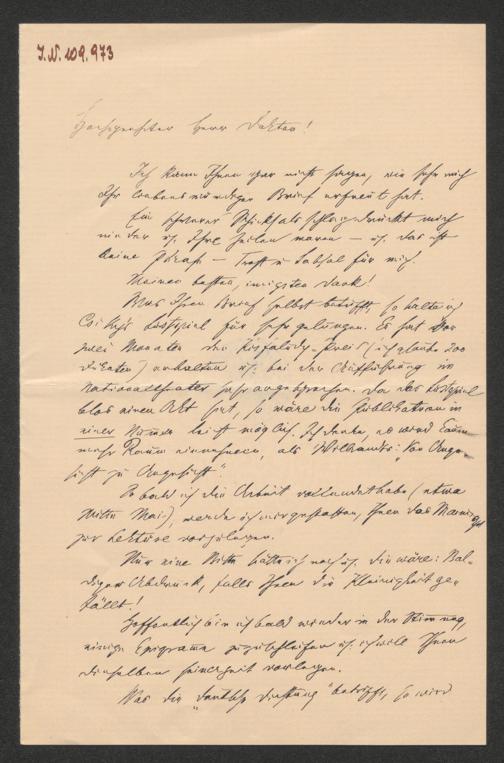 J.N. 109.973
Hochgeehrter Herr Doktor!
Ich kann Ihnen gar nicht sagen, wie sehr mich
Ihr liebenswürdiger Brief erfreut hat.
Ein schwerer Schicksalsschlag drückt mich
nieder u. Ihre Zeilen waren – u. das ist
keine Phrase – Trost u. Labsal für mich!
Meinen besten, innigsten Dank!
Was Ihren Brief selbst betrifft, so halte ich
Csiky's Lustspiel für sehr gelungen. Es hat vor
zwei Monaten den Kisfaludy-Preis (ich glaube 200
Dukaten) erhalten u. bei der Aufführung im
Nationaltheater sehr angesprochen. Da das Lustspiel
blos einen Akt hat, so wäre die Publikation in
einer Nummer leicht möglich. Ich denke, es wird kaum
mehr Raum einnehmen, als Wilbrandts "Von Ange-
sicht zu Angesicht".
So bald ich die Arbeit vollendet habe (etwa
Mitte Mai), werde ich mir gestatten, Ihnen das Manuskript
zur Lektüre vorzulegen.
Nur eine Bitte hätte ich noch u. die wäre: Bal-
diger Abdruck, falls Ihnen die Kleinigkeit ge-
fällt!
Hoffentlich bin ich bald wieder in der Stimmung,
einige Epigramme zuzuschleifen u. ich will Ihnen
dieselben seinerzeit vorlegen.
Was die "Deutsche Dichtung" betrifft, so wird